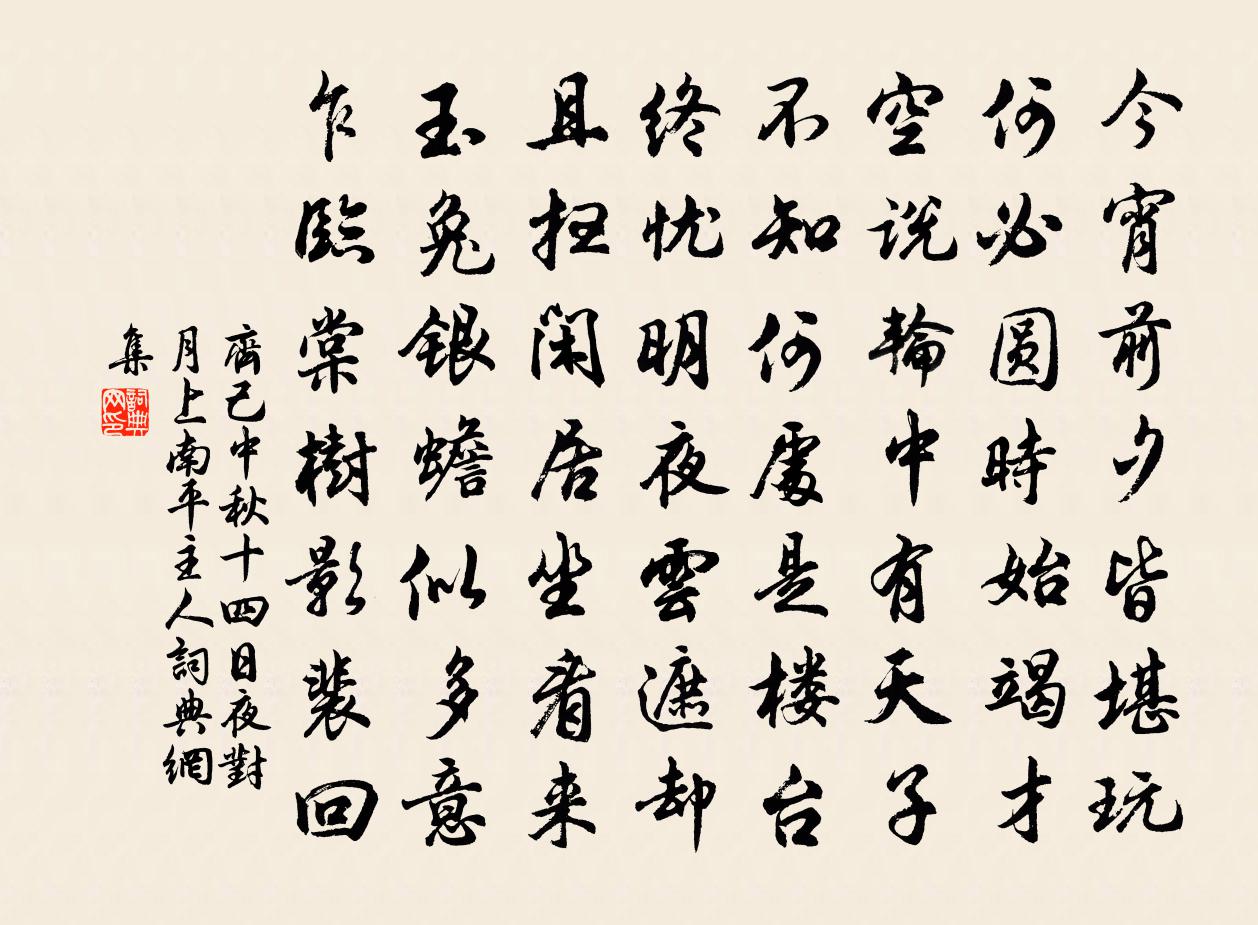 今宵前夕皆堪玩
何必圆時始竭才
空说輪中有天子
不知何處是楼台
终忧明夜雲遮却
且扫闲居坐看来
玉兔銀蟾似多意
乍臨棠樹影裴回
齊己中秋十四日夜對
月上南平主人詞典網
集
詞典
网印